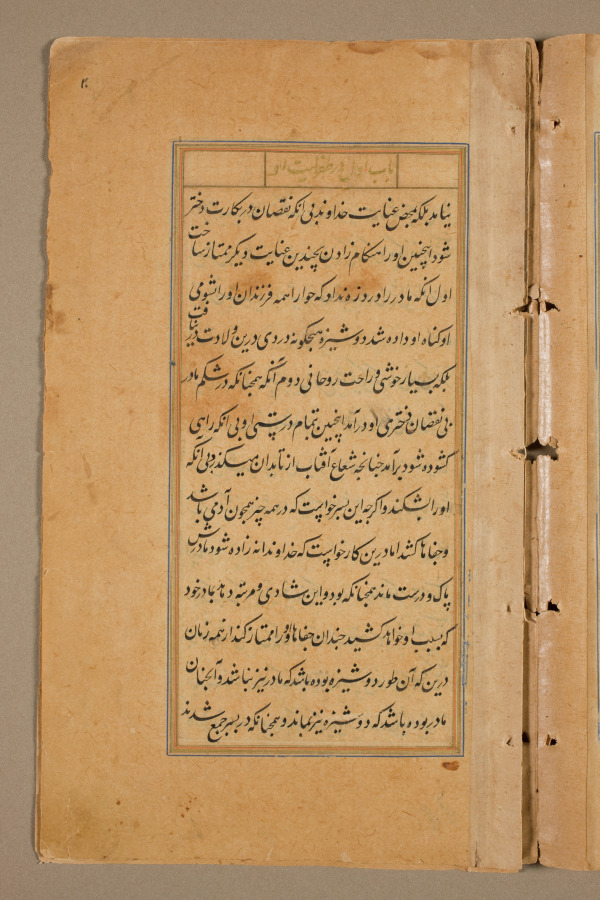 ۲۰
باب اول در طفولیت او
نیامد بلکه بمحض عنایت خداوند بی آنکه نقصان در بکارت دختر
شود اینچنین او را هنگام زادن بچندین عنایت دیگر ممتاز ساخت
اول آنکه مادر را درد زه نداد که حوا را همه فرزندان او را بشومی
او کناه او داده شد دوشیزه هیچکونه دردی درین ولادت در نیافت
بلکه بسیار خوشی و راحت روحانی دوم آنکه همچنانکه در شکم مادر
بی نقصان دختری او درآمد اینچنین تمام درستی او بی آنکه راهی
کشوده شود برآمد چنانچه شعاع آفتاب از تابدان میکذرد بی آنکه
او را بشکند و اکرچه این پسر خواست که در همه چیز همچون آدمی باشد
و جفاها کشد اما درین کار خواست که خداوندانه زاده شود مادرش
پاک و درست ماند همچنانکه بود و این شادی و مرتبه دهد بمادر خود
که بسبب او خواهد کشید چندان جفاها و او را ممتاز کند از همه زنان
درین که آن طور دوشیزه بوده باشد که مادر نیز نباشد و آنچنان
مادر بوده باشد که دوشیزه نیز نماند و همچنانکه در پسر جمع شدند